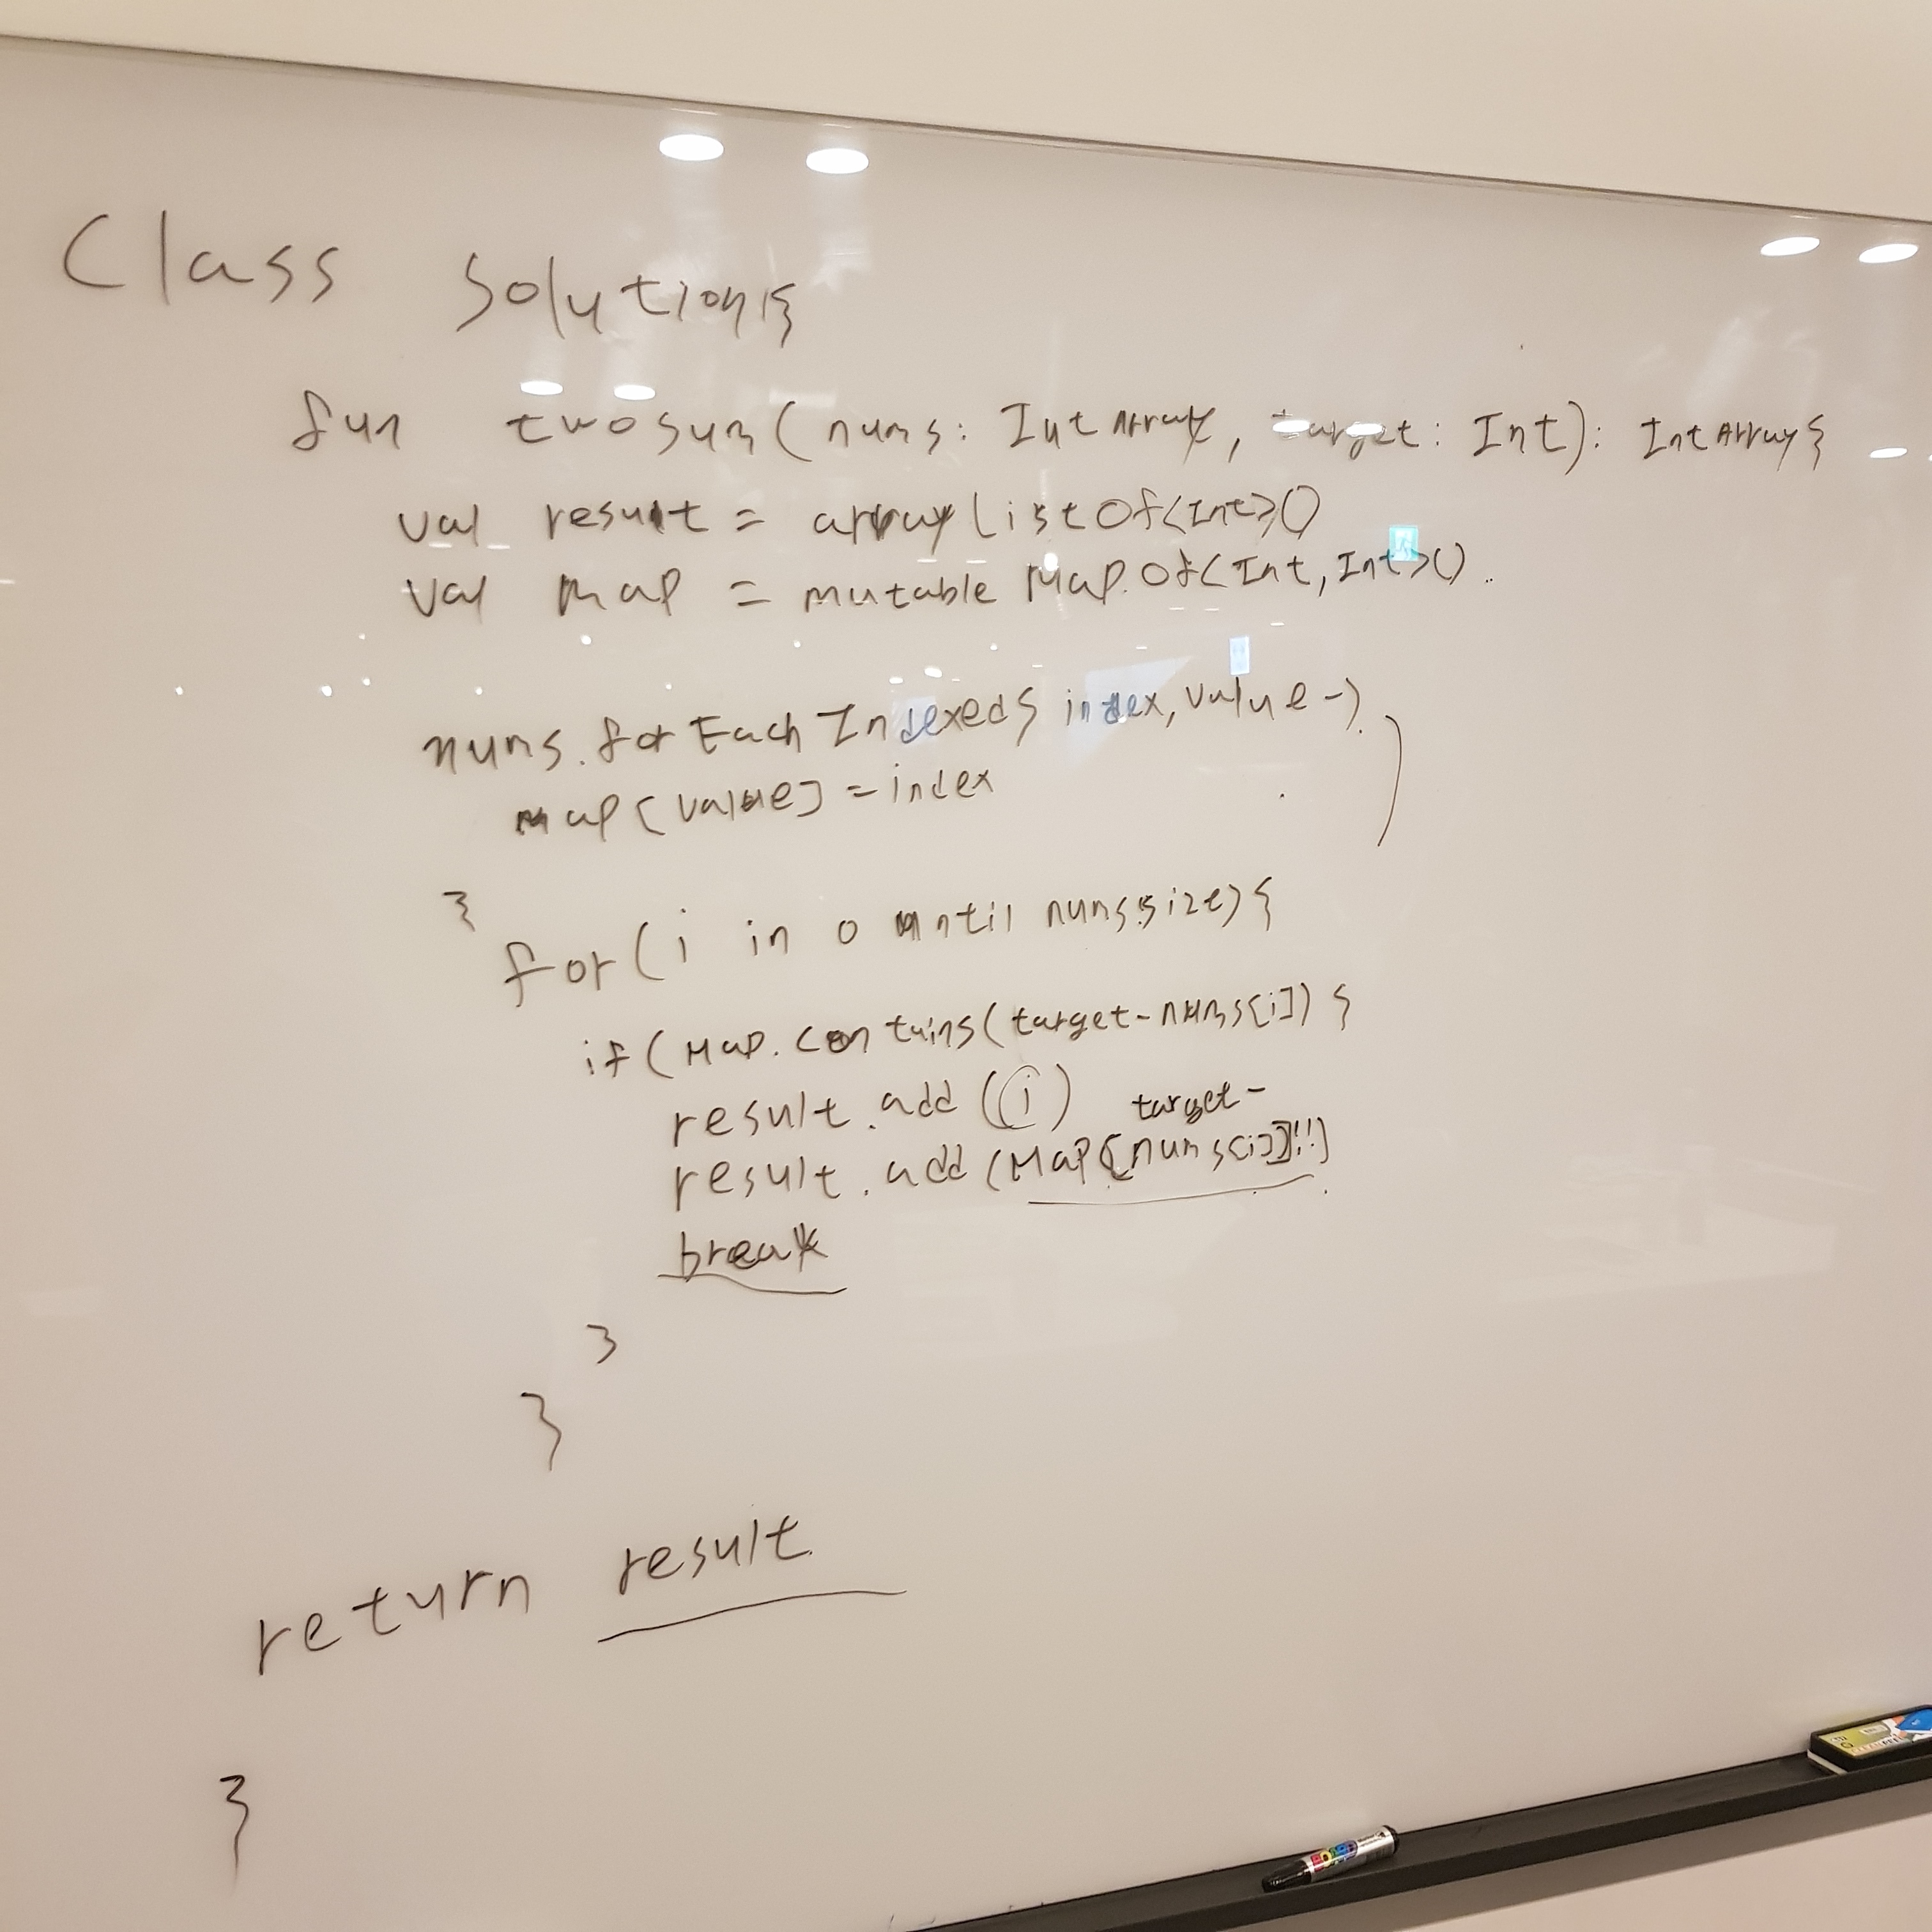 Class Solution{
fun twosum(nums: IntArray, target: Int): IntArray{
val result = arraylistOf<Int>()
val map = mutableMapOf<Int, Int>()
nums.forEachIndexed{ index, value ->
map[value] = index
}
for(i in 0 until nums.size){
if(map.contains(target-nums[i]){
result.add(i)
target-
result.add(map[nums[i]]!!)
break
}
}
return result
}